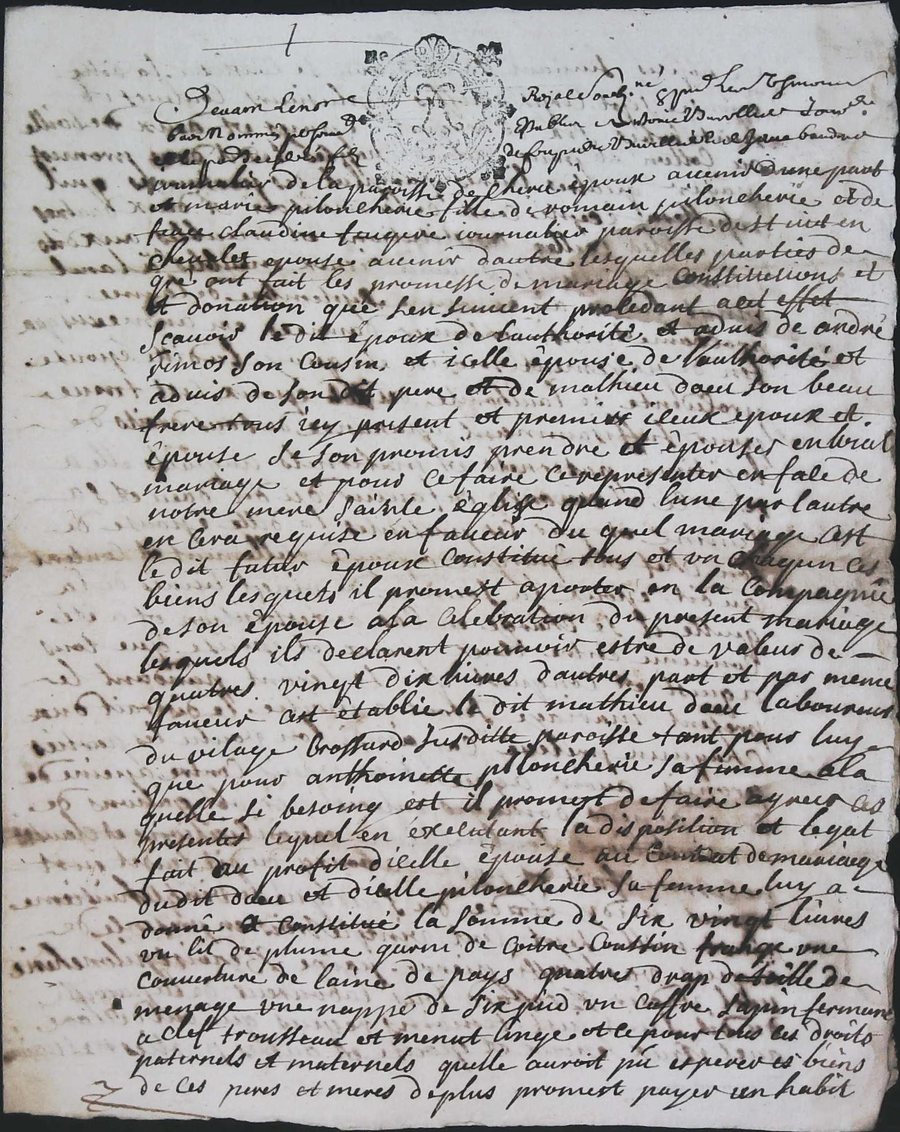 Royal
journalier de la paroisse de cherie époux avenir d'une part
et marie piloncherie fille de romain piloncherie et de
feue claudine faugere journalier paroisse de st just en
chevalet epouse avenir dautre lesquelles parties de
gre ont fait les promesse de mariage Constitutions et
et donation que sensuivent procedant a cet effet
scauoir le dit époux de lauthorité et aduis de andré
son Cousin et icelle épouse de lauthorité et
aduis de son dit pere et de mathieu son beau
frere tous icy present et premier iceux epoux et
épouse se son promis prendre et épouser en vrai
mariage et pour ce faire ce representer en face de
notre mere sainte église quand lune par lautre
en cera requise en faueur du quel mariage cest
le dit futur époux Constitué tous et un chaqun ces
biens lesquels il promest aporter en la Compagnie
de son épouse a la Celebration du present mariage
lesquels ils declarent pouuoir estre de valeur de
quatres vingt dix liures d'autres part et par meme
faueur cest établie le dit mathieu laboureur
du vilage Brossard susditte paroisse tant pour luy
que pour anthoinette piloncherie sa fimme a la
quelle si besoing est il promest de faire agreer ces
presentes lequel en éxécutant la disposition et legat
fait au profit dicelle épouse au Contrat de mariaige
dudit et dicelle piloncherie sa femme luy a
donné et Constitué la somme de six vingt liures
un lit de plume garni de Coitre Coussin frange une
couuerture de laine de pays quatres drap de toille de
menage une nappe de six pied un Coffre sapin fermant
a clef trousseau et menut linge et ce pour tous ces droits
paternels et maternels quelle auroit pu esperer es biens
de ces peres et meres de plus promest payer un habit